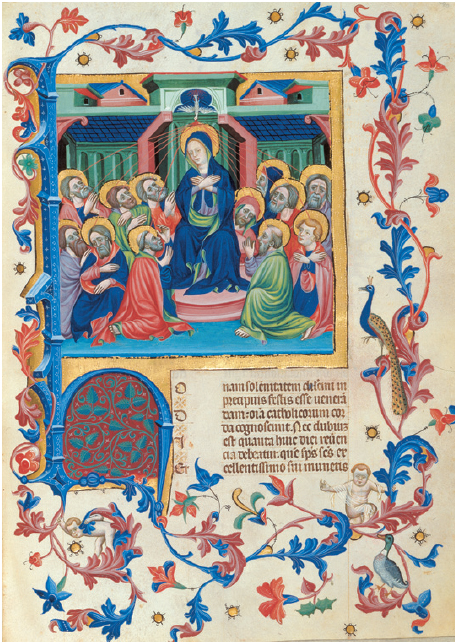 nam solenitatem in
precipuis festis esse venerā
dam: oīa catholicorum cor
da cognoscunt. Nec dubium
est quanta huic diei reueren
cia debeatur: que sp̄s scs̄ ex
cellentissimo sui muneris